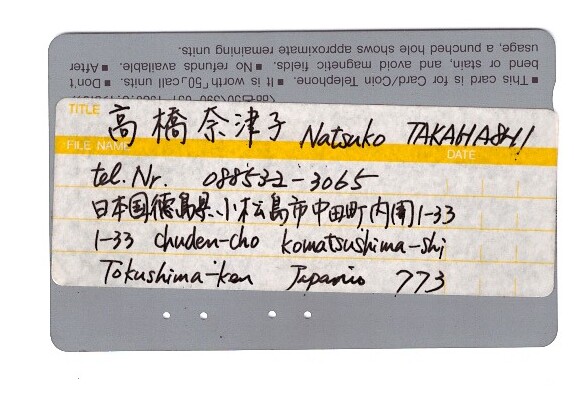 ■ This card is for Card/Coin Telephone. ■ It is worth "50" call units. ■ Don't
bend or stain, and avoid magnetic fields. ■ No refunds available. ■ After
usage, a punched hole shows approximate remaining.
TITLE
高橋奈津子 Natsuko TAKAHASHI
FILE NAME
DATE
tel. Nr. 088532-3065
日本国徳島県小松島市中田町内開1-33
1-33 chuden-cho komatsushima-shi
Tokushima-ken Japanio 773